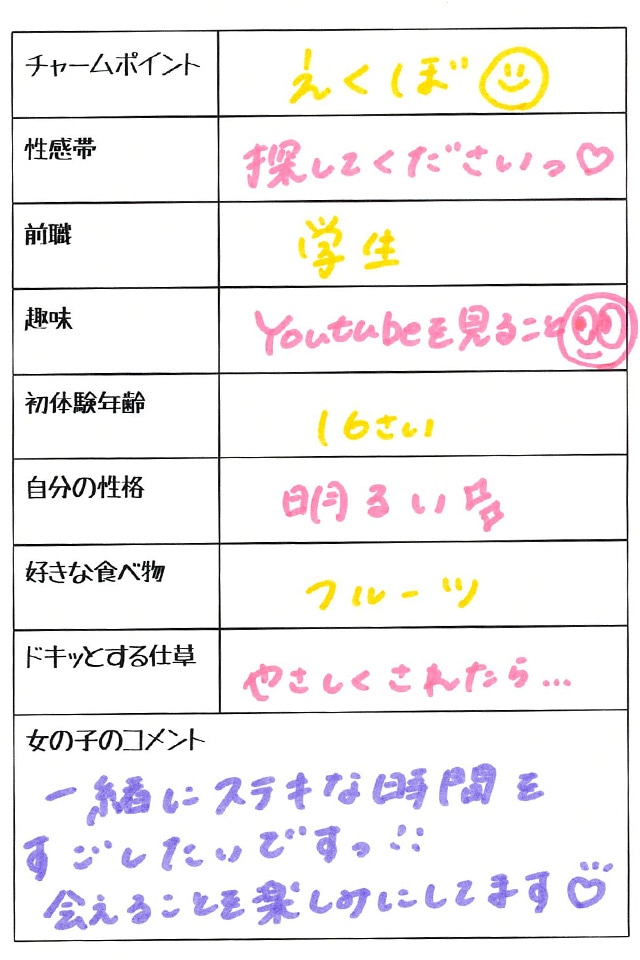 チャームポイント えくぼ
性感帯 探してくださいっ♡
前職 学生
趣味 Youtubeを見ること
初体験年齢 16さい
自分の性格 明るい
好きな食べ物 フルーツ
ドキッとする仕草 やさしくされたら...
女の子のコメント
一緒にステキな時間を
すごしたいですっ
会えることを楽しみにしてます♡